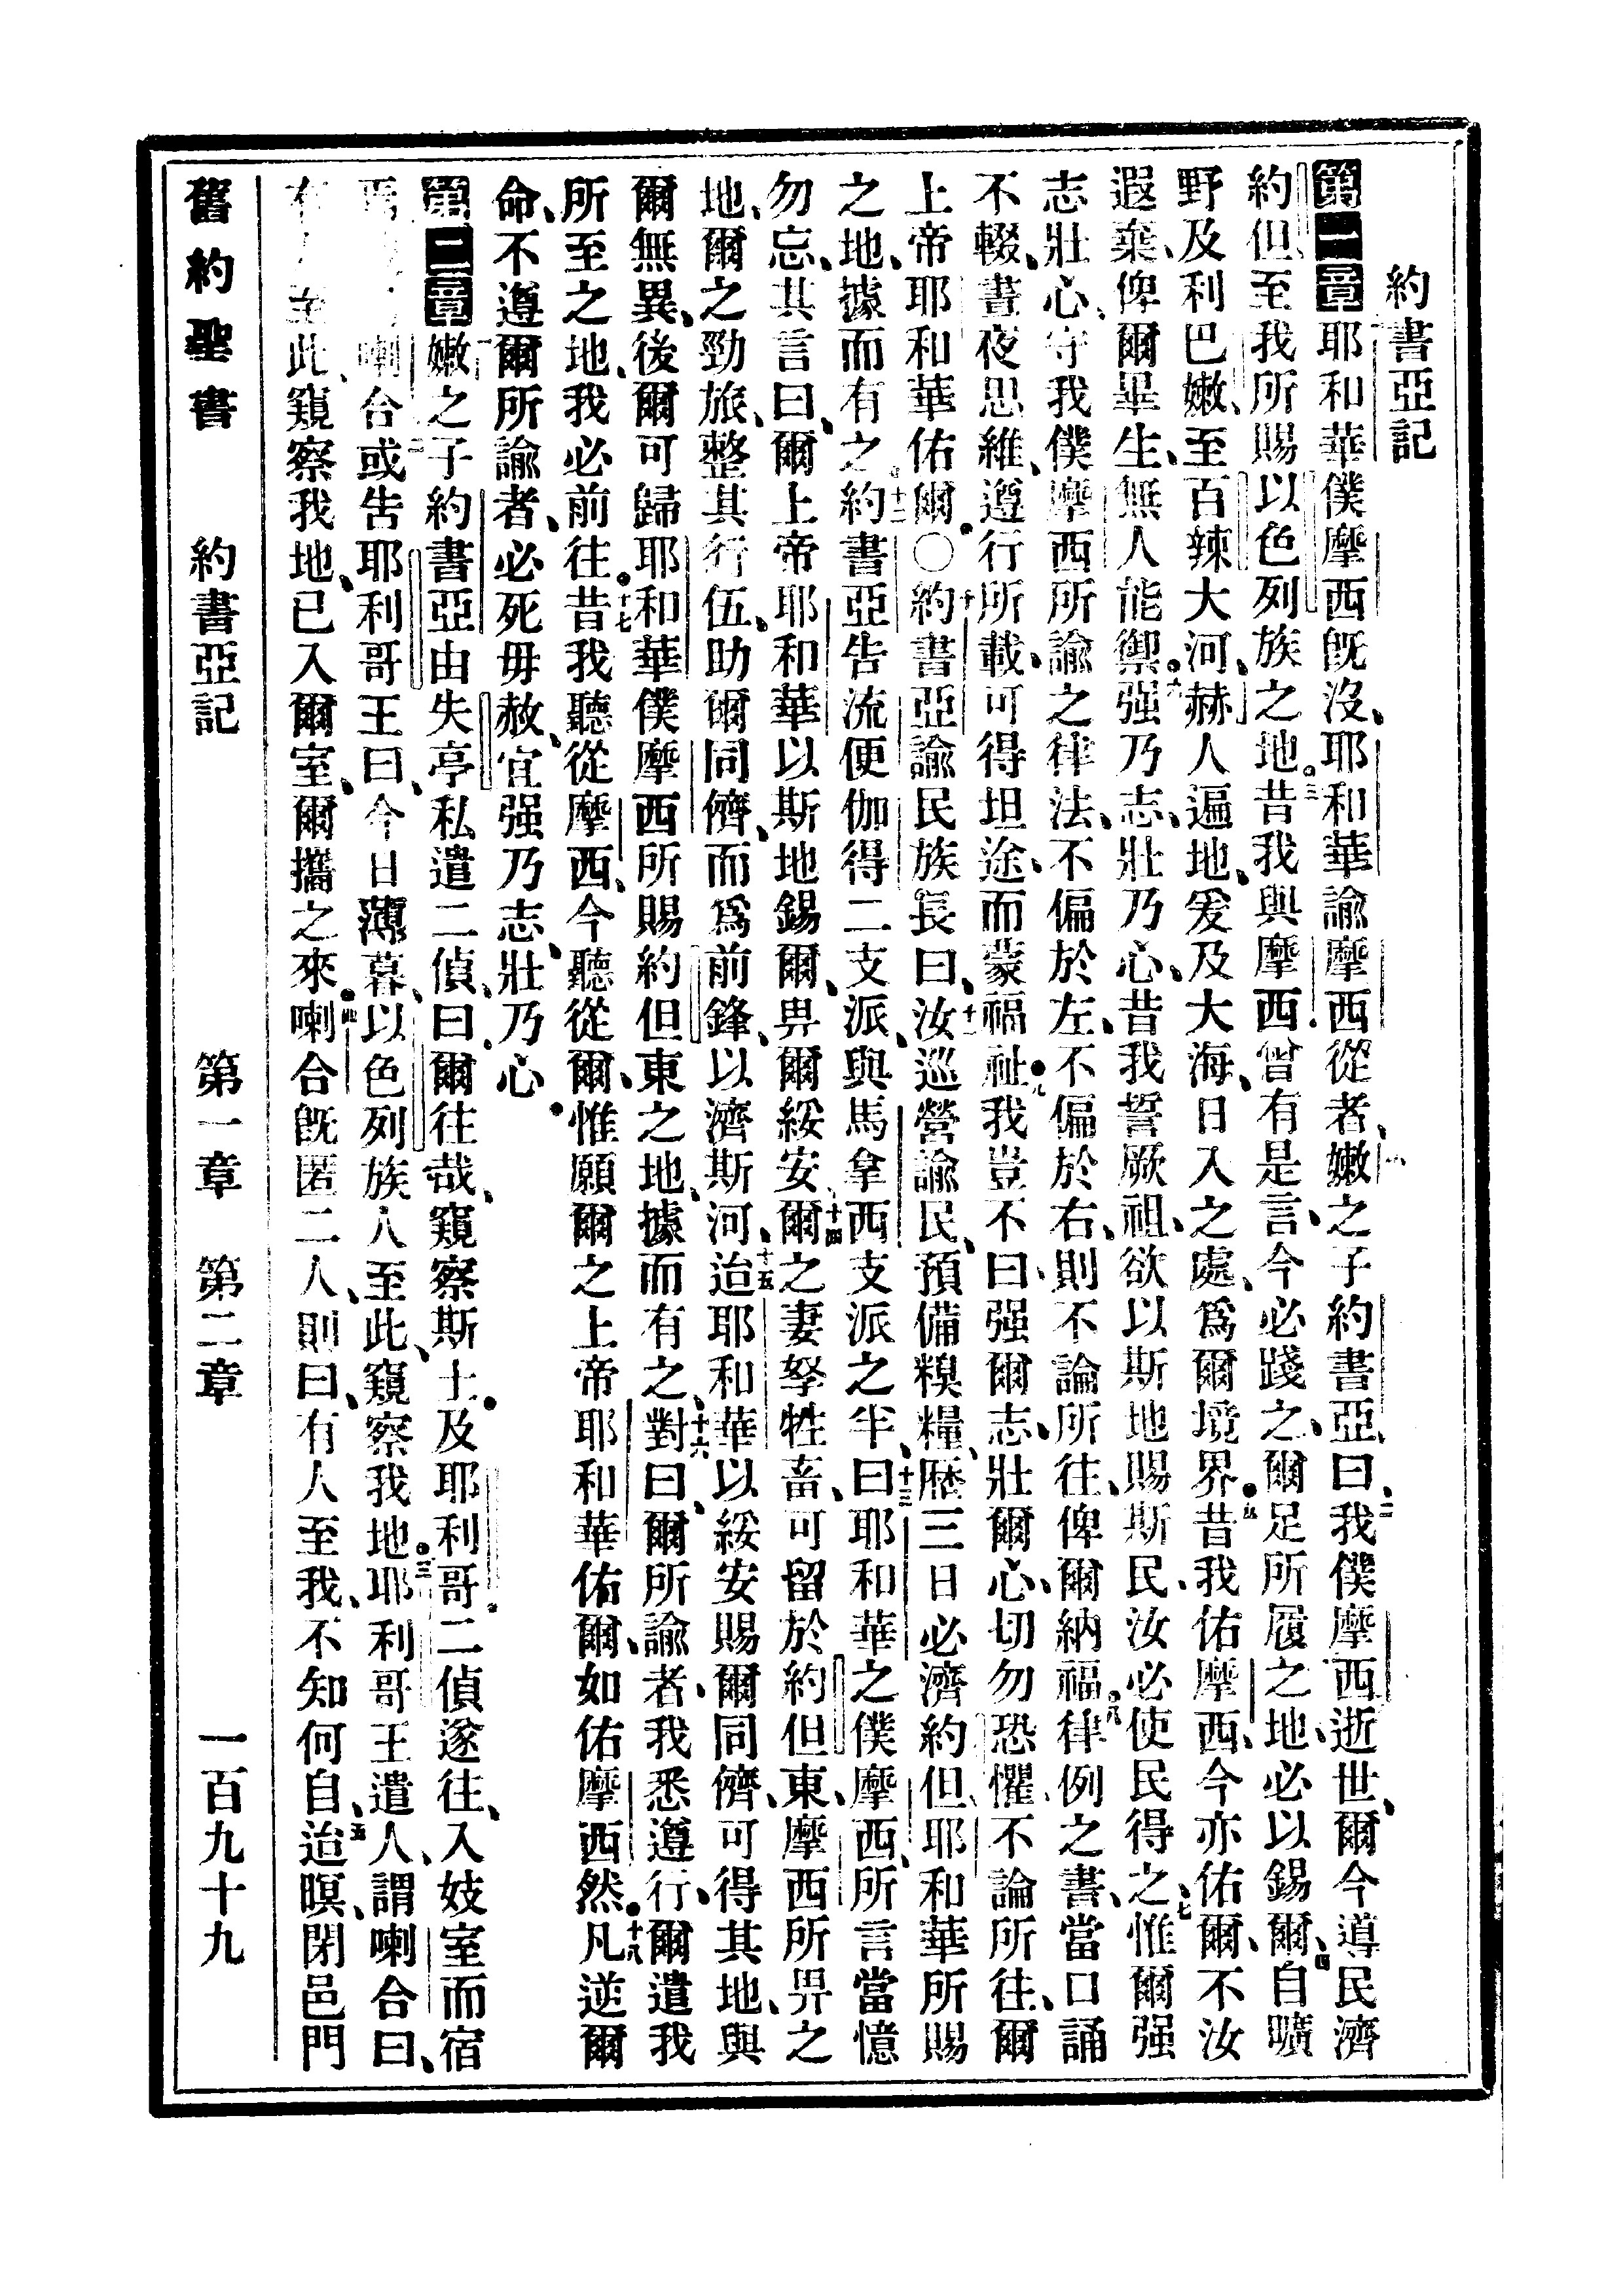 約書亞記
第一章耶和華僕摩西旣沒、耶和華諭摩西從者、嫩之子約書亞、曰、二我僕摩西逝世、爾今導民濟
約但、至我所賜以色列族之地。三昔我與摩西曾有是言、今必踐之、爾足所履之地、必以錫爾、四自曠
野及利巴嫩、至百辣大河、赫人遍地、爰及大海、日入之處、爲爾境界。五昔我佑摩西、今亦佑爾、不汝
遐棄、俾爾畢生、無人能禦。六强乃志、壯乃心、昔我誓厥祖、欲以斯地賜斯民、汝必使民得之、七惟爾强
志壯心、守我僕摩西所諭之律法、不偏於左、不偏於右、則不論所往、俾爾納福。八律例之書、當口誦
不輟、晝夜思維、遵行所載、可得坦途、而蒙福祉。九我豈不曰、强爾志、壯爾心、切勿恐懼、不論所往、爾
上帝耶和華佑爾。〇十約書亞諭民族長曰、十一汝巡營諭民、預備糗糧、歷三日必濟約但、耶和華所賜
之地、據而有之。十二約書亞告流便伽得二支派、與馬拿西支派之半、曰、十三耶和華之僕摩西、所言當憶
勿忘、其言曰、爾上帝耶和華以斯地錫爾、畀爾綏安、十四爾之妻孥牲畜、可留於約但東、摩西所畀之
地、爾之勁旅、整其行伍、助爾同儕、而爲前鋒、以濟斯河、十五迨耶和華以綏安賜爾同儕、可得其地、與
爾無異、後爾可歸耶和華僕摩西所賜約但東之地、據而有之、十六對曰、爾所諭者、我悉遵行、爾遣我
所至之地、我必前往。十七昔我聽從摩西、今聽從爾、惟願爾之上帝耶和華佑爾、如佑摩西然。十八凡逆爾
命、不遵爾所諭者、必死毋赦、宜强乃志、壯乃心。
第二章嫩之子約書亞由失亭私遣二偵、曰、爾往哉、窺察斯土。及耶利哥。二偵遂往、入妓室而宿
喇合或告耶利哥王曰、今日薄暮、以色列族人至此、窺察我地。三耶利哥王遣人、謂喇合曰、
至此、窺察我地、已入爾室、爾攜之來。四喇合旣匿二人、則曰、有人至我、不知何自、五迨暝、閉邑門
舊約聖書　約書亞記　第一章　第二章　一百九十九